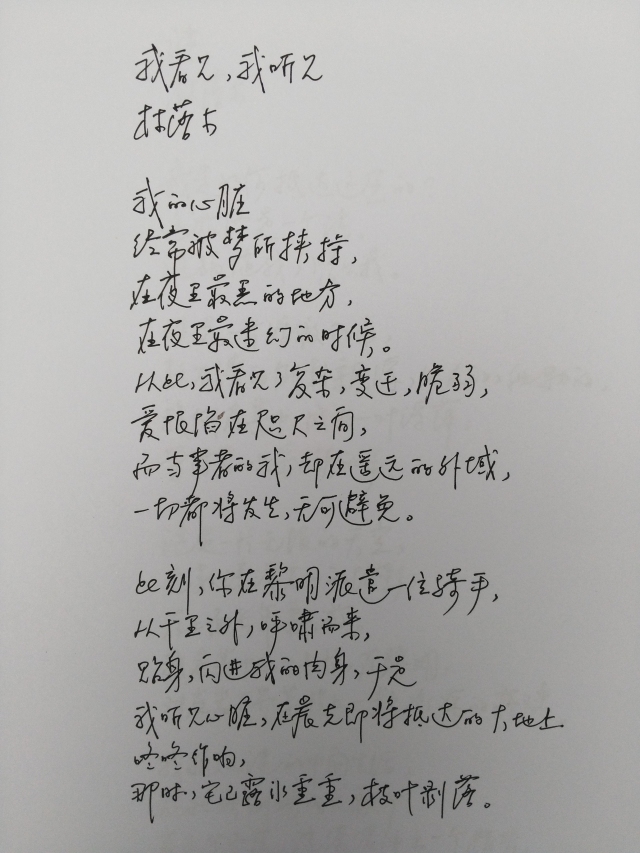 我看见,我听见
林落卡
我的心脏
经常被梦所挟持,
在夜里最黑的地方,
在夜里最迷幻的时候。
从此,我看见了复杂,变迁,脆弱,
爱恨陷在咫尺之间,
而当事者的我,却在遥远的外域,
一切都将发生,无可避免。
此刻,你在黎明派遣一位骑手,
从千里之外,呼啸而来,
贴身,闪进我的肉身,于是
我听见心脏,在晨光即将抵达的大地上
咚咚作响,
那时,它已露水重重,枝叶剥落。